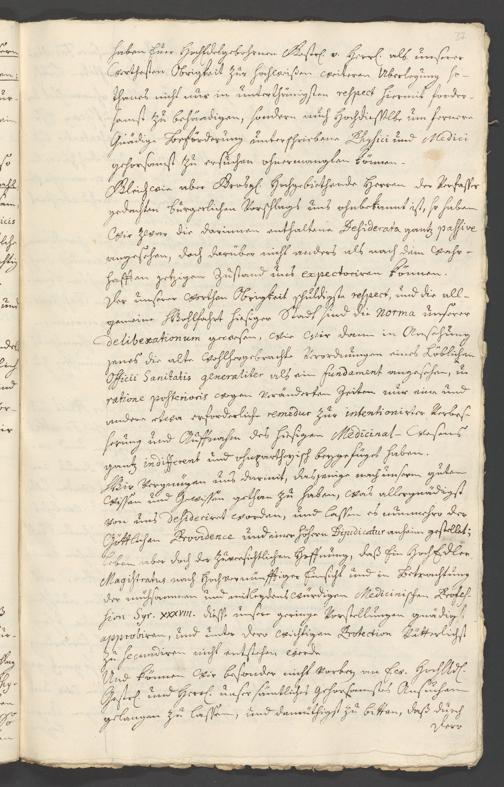 haben Euer HochEdelgebohrnen Gestr. v. Herrl. als unserer
Werthesten Obrigkeit zur Hochweißen weiteren Überlegung
nicht nur in unterthänigsten respect hiermit
zu behändigen, sondern auch Hochdieselbe um fernere
Gnädige Beförderung unterschriebene Physici und Medici
gehorsamst zu ersuchen ohnermanglen können.
Gleichwie aber Hochgebiethende Herren der Verfasser
gedachten bürgerlichen Vorschlags uns ohnbekannt ist, so haben
wir zwar die darinnen enthaltene Desiderata gantz passive
angesehen, doch darüber nicht anders als nach dem wahr-
hafften jetzigen Zustand uns expectoriren können.
Der unserer werthen Obrigkeit schuldigste respect, und die all-
gemeine Wohlfahrt hiesiger Stadt sind die Norma unserer
deliberationum gewesen, wie wir dann in Ansehung
jenes die alte wohlhergebrachte Verordnungen eines Löblichen
Officii Sanitatis generaliter als ein fundament angesehen, in
ratione posterioris wegen veränderten Zeiten nur ein und
andere etwa erforderlich remedur zur intentionirter Verbes-
serung und Auffnahm des hiesigen Medicinal-Wesens
gantz indifferent und ohnpartheyisch beygefüget haben.
Wir vergnügen uns damit, dasjenige nach unserm guten
Wissen und Gewissen gethan zu haben, was allergnädigst
von uns desideriret worden, und lassen es nunmehro der
Göttlichen Providence und einer höhern Dijudicatur anheim gestellet;
Leben aber doch der zuversichtlichen Hoffnung, daß Ein HochEdler
Magistratus nach Hochvernünfftiger Einsicht und in Betrachtung
der mühsamen und mitleydenswürdigen Medicinischen Profes-
sion Syr. XXXVIII. diese unser geringe Vorstellungen gnädigst
approbiren, und unter dero wichtigen Protection Vätterlichst
zu secundiren nicht entstehen werde
Und können wir besonder nicht vorbey an Ew. HochEdl.
Gestr. und Herrl. unser sämtliches gehorsamstes Ansuchen
gelangen zu lassen, und demüthigst zu bitten, daß durch
Dero